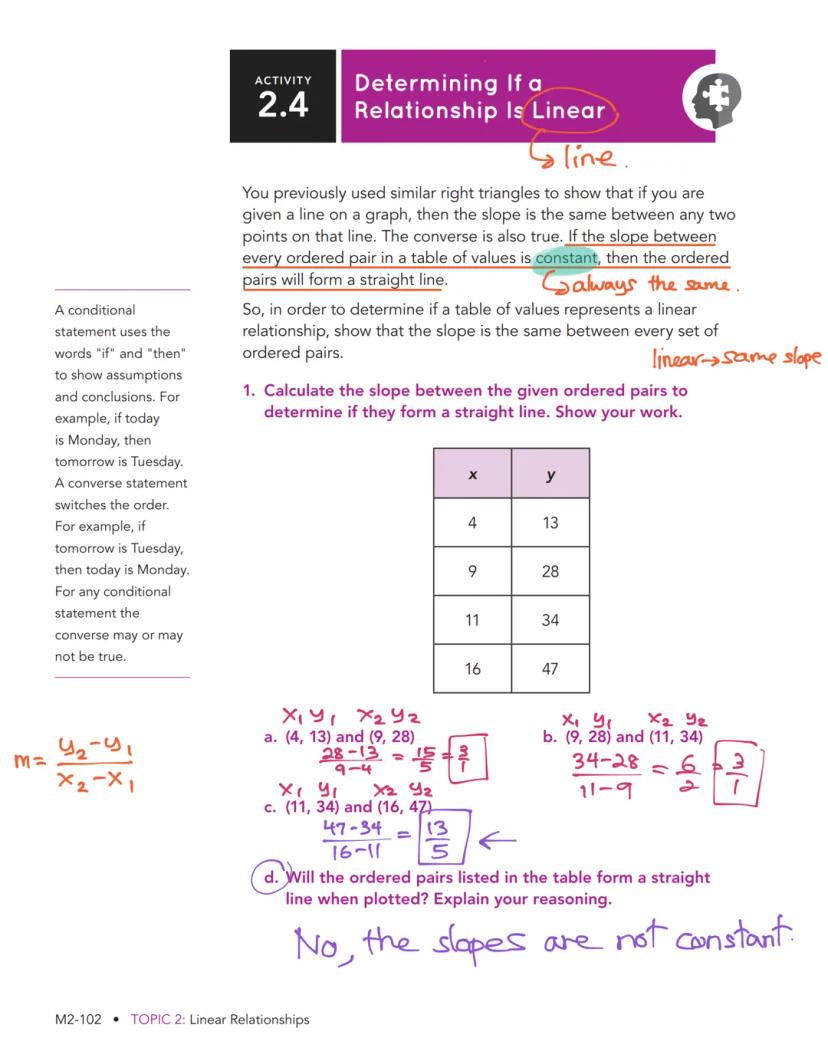 ACTIVITY
2.4
Determining If a
Relationship Is Linear
↳ line.
You previously used similar right triangles to show that if you are
given a line on a graph, then the slope is the same between any two
points on that line. The converse is also true. If the slope between
every ordered pair in a table of values is constant, then the ordered
pairs will form a straight line.
↳ always the same.
So, in order to determine if a table of values represents a linear
relationship, show that the slope is the same between every set of
ordered pairs.
linear → same slope
A conditional
statement uses the
words "if" and "then"
to show assumptions
and conclusions. For
example, if today
is Monday, then
tomorrow is Tuesday.
A converse statement
switches the order.
For example, if
tomorrow is Tuesday,
then today is Monday.
For any conditional
statement the
converse may or may
not be true.
1. Calculate the slope between the given ordered pairs to
determine if they form a straight line. Show your work.
x y
4 13
9 28
11 34
16 47
m = (y₂-y₁)/(x₂-x₁)
x₁ y₁ x₂ y₂
a. (4, 13) and (9, 28)
(28-13)/(9-4) = 15/5 = 3/1
x₁ y₁ x₂ y₂
b. (9, 28) and (11, 34)
(34-28)/(11-9) = 6/2 = 3/1
x₁ y₁ x₂ y₂
c. (11, 34) and (16, 47)
(47-34)/(16-11) = 13/5 ←
d. Will the ordered pairs listed in the table form a straight
line when plotted? Explain your reasoning.
No, the slopes are not constant.
M2-102 • TOPIC 2: Linear Relationships